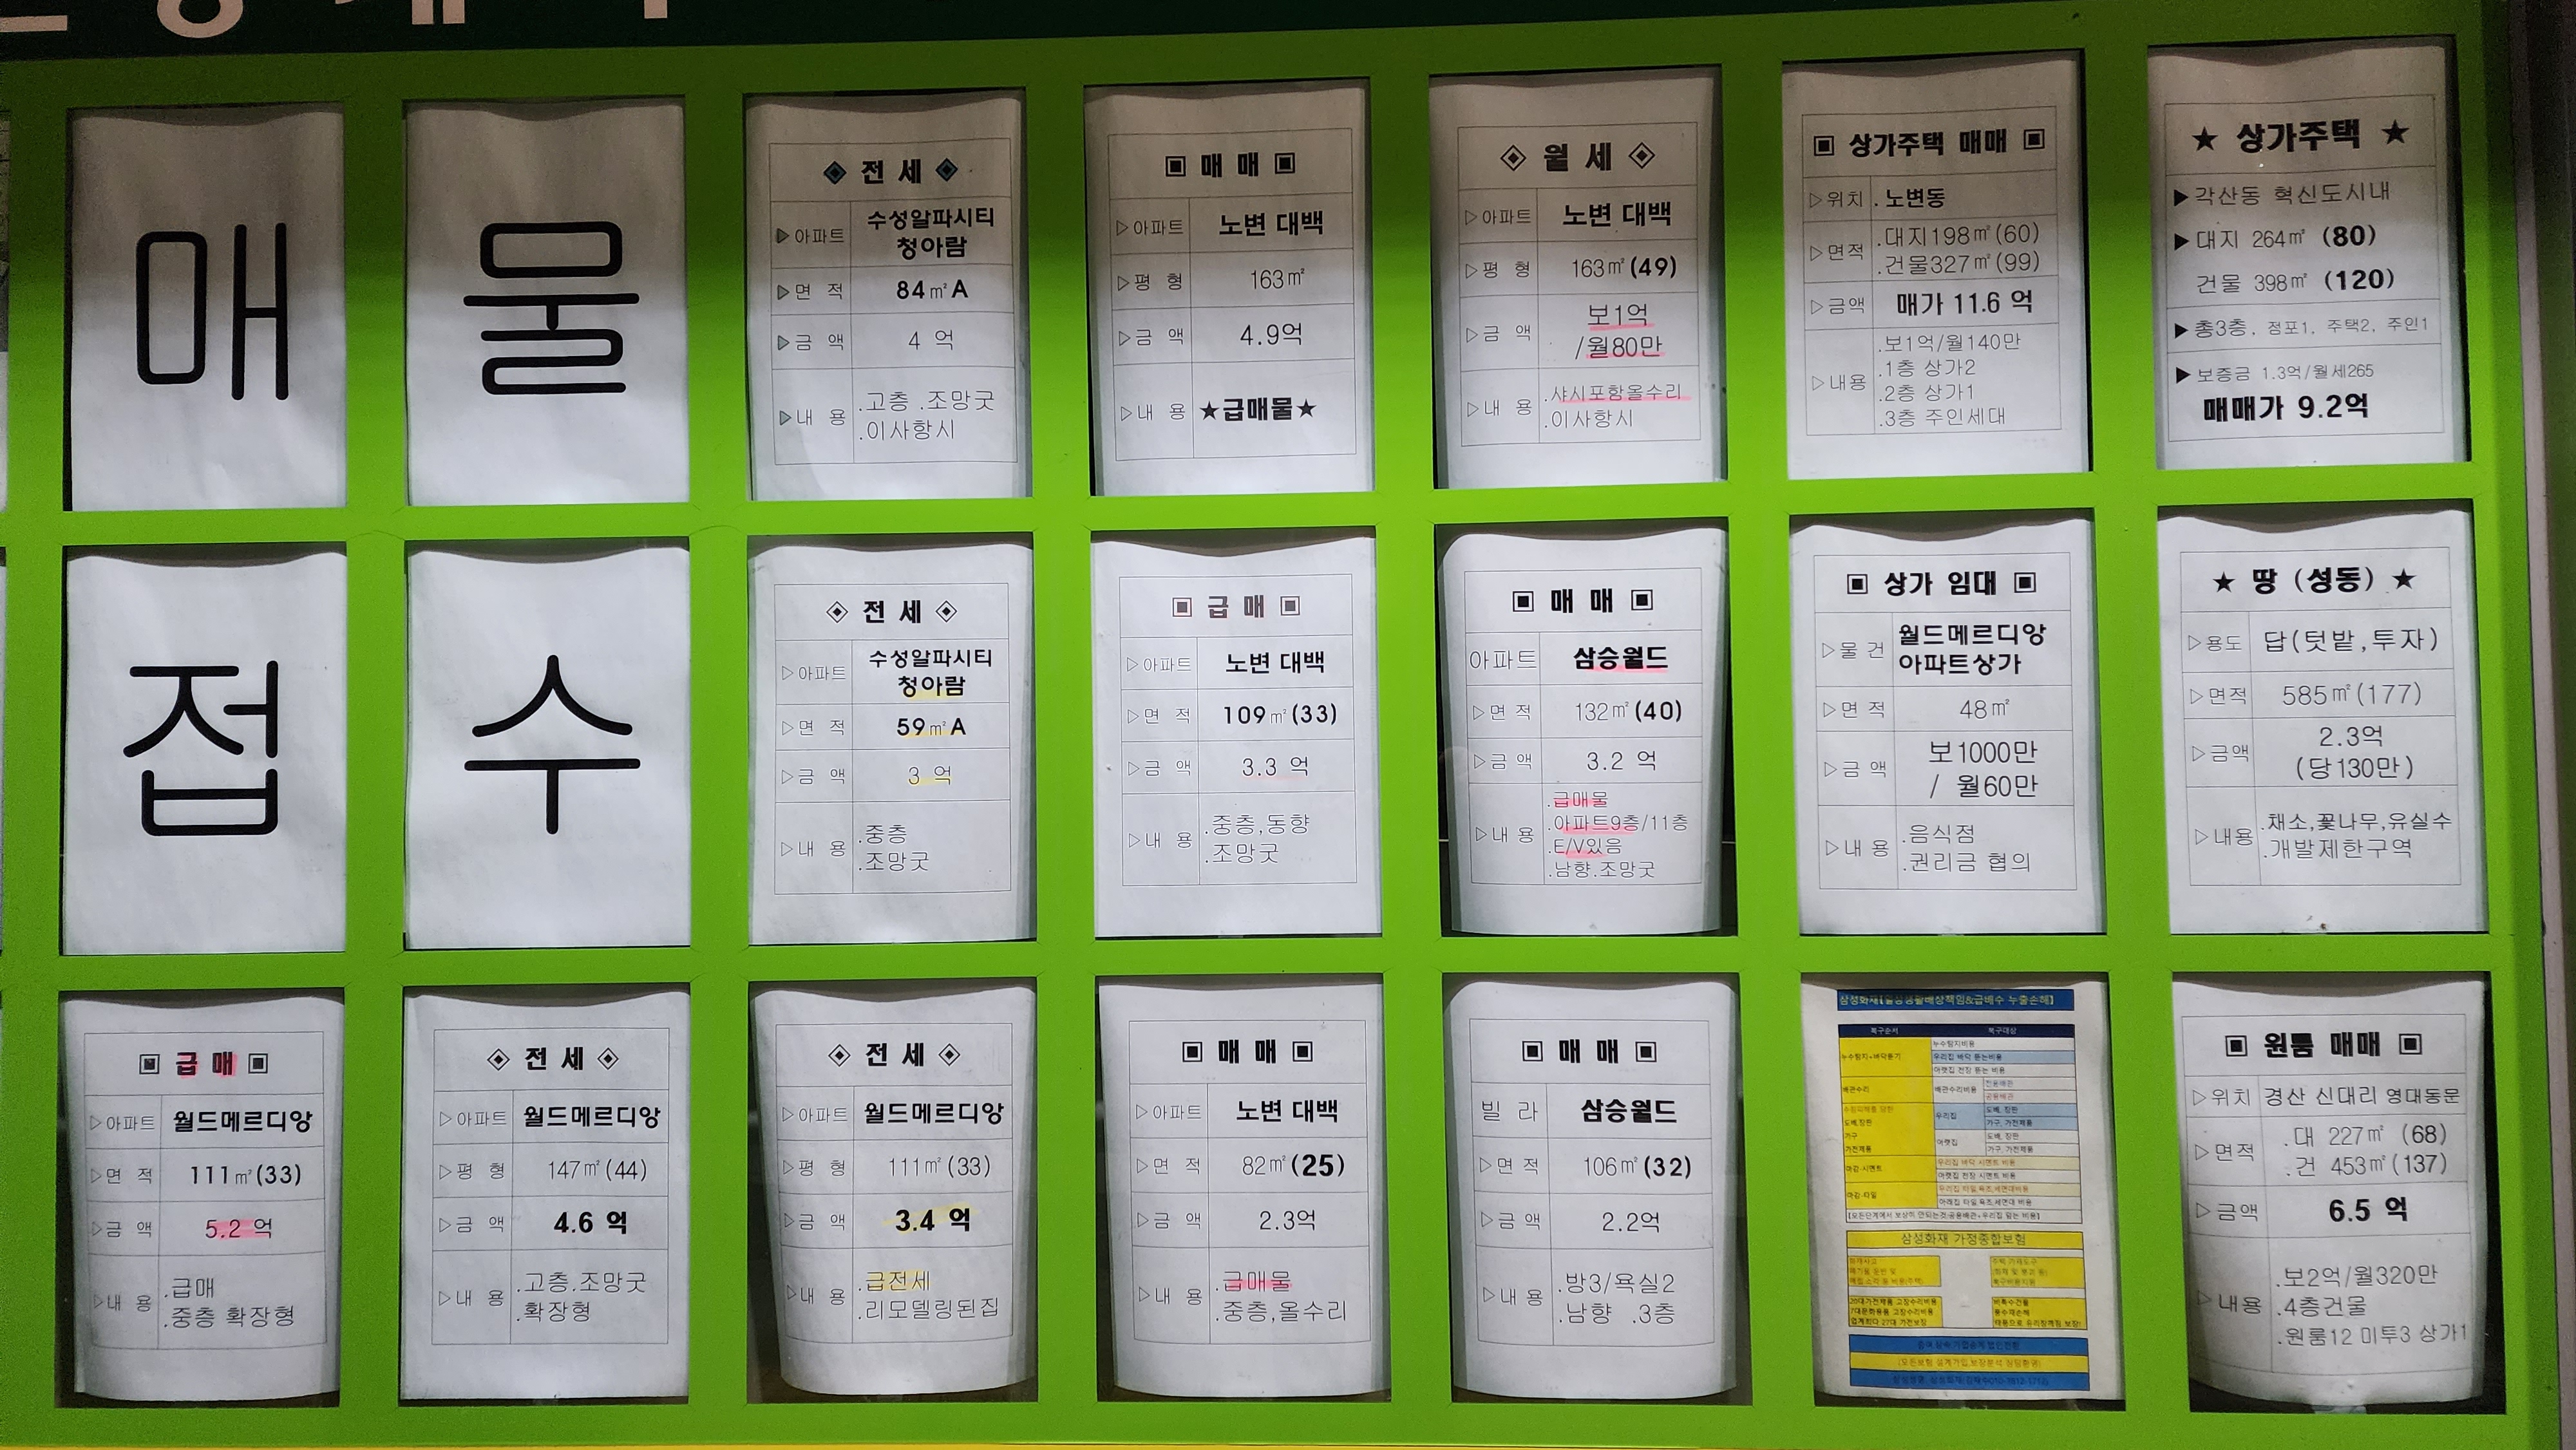 매
물
◈ 전 세 ◈
▶아파트 수성알파시티
청아람
▶면 적 84㎡A
▶금 액 4 억
▶내 용 .고층 .조망굿
.이사항시
▣ 매 매 ▣
▷아파트 노변 대백
▷평 형 163㎡
▷금 액 4.9억
▷내 용 ★급매물★
◈ 월 세 ◈
▷아파트 노변 대백
▷평 형 163㎡(49)
▷금 액 보1억
/월80만
▷내 용 .샤시포함올수리
.이사항시
▣ 상가주택 매매 ▣
▷위치 . 노변동
▷면적 .대지198㎡(60)
.건물327㎡(99)
▷금액 매가 11.6 억
▷내용 .보1억/월140만
.1층 상가2
.2층 상가1
.3층 주인세대
★ 상가주택 ★
▶각산동 혁신도시내
▶대지 264㎡ (80)
건물 398㎡ (120)
▶총3층. 점포1. 주택2. 주인1
▶보증금 1.3억/월세265
매매가 9.2억
접
수
◈ 전 세 ◈
▷아파트 수성알파시티
청아람
▷면 적 59㎡A
▷금 액 3 억
▷내 용 .중층
.조망굿
▣ 급 매 ▣
▷아파트 노변 대백
▷면 적 109㎡(33)
▷금 액 3.3 억
▷내 용 .중층,동향
.조망굿
▣ 매 매 ▣
아파트 삼승월드
▷면 적 132㎡(40)
▷금 액 3.2 억
▷내 용 .급매물
.아파트9층/11층
.E/V있음
.남향.조망굿
▣ 상가 임대 ▣
▷물 건 월드메르디앙
아파트상가
▷면 적 48㎡
▷금 액 보1000만
/ 월60만
▷내 용 .음식점
.권리금 협의
★ 땅 (성동) ★
▷용도 답(텃밭,투자)
▷면적 585㎡(177)
▷금액 2.3억
(당130만)
▷내용 .채소,꽃나무,유실수
.개발제한구역
▣ 급 매 ▣
▷아파트 월드메르디앙
▷면 적 111㎡(33)
▷금 액 5.2 억
▷내 용 .급매
.중층 확장형
◈ 전 세 ◈
▷아파트 월드메르디앙
▷평 형 147㎡(44)
▷금 액 4.6 억
▷내 용 .고층.조망굿
.확장형
◈ 전 세 ◈
▷아파트 월드메르디앙
▷평 형 111㎡(33)
▷금 액 3.4 억
▷내 용 .급전세
.리모델링된집
▣ 매 매 ▣
▷아파트 노변 대백
▷면 적 82㎡(25)
▷금 액 2.3억
▷내 용 .급매물
.중층,올수리
▣ 매 매 ▣
빌 라 삼승월드
▷면 적 106㎡(32)
▷금 액 2.2억
▷내 용 .방3/욕실2
.남향 .3층
복구순서 복구대상
누수탐지+바닥뜯기 누수탐지비용
우리집 바닥 뜯는비용
아랫집 천장 뜯는 비용
배관수리 배관수리비용 전용배관
공용배관
도배,장판
가구
가전제품
우리집 도배, 장판
가구, 가전제품
아랫집 도배, 장판
가구, 가전제품
마감-시멘트 우리집 바닥 시멘트 비용
아랫집 천장 시멘트 비용
마감-타일
삼성화재 가정종합보험
▣ 원룸 매매 ▣
▷위치 경산 신대리 영대동문
▷면적 .대 227㎡ (68)
.건 453㎡(137)
▷금액 6.5 억
▷내용 .보2억/월320만
.4층건물
.원룸12 미투3 상가1